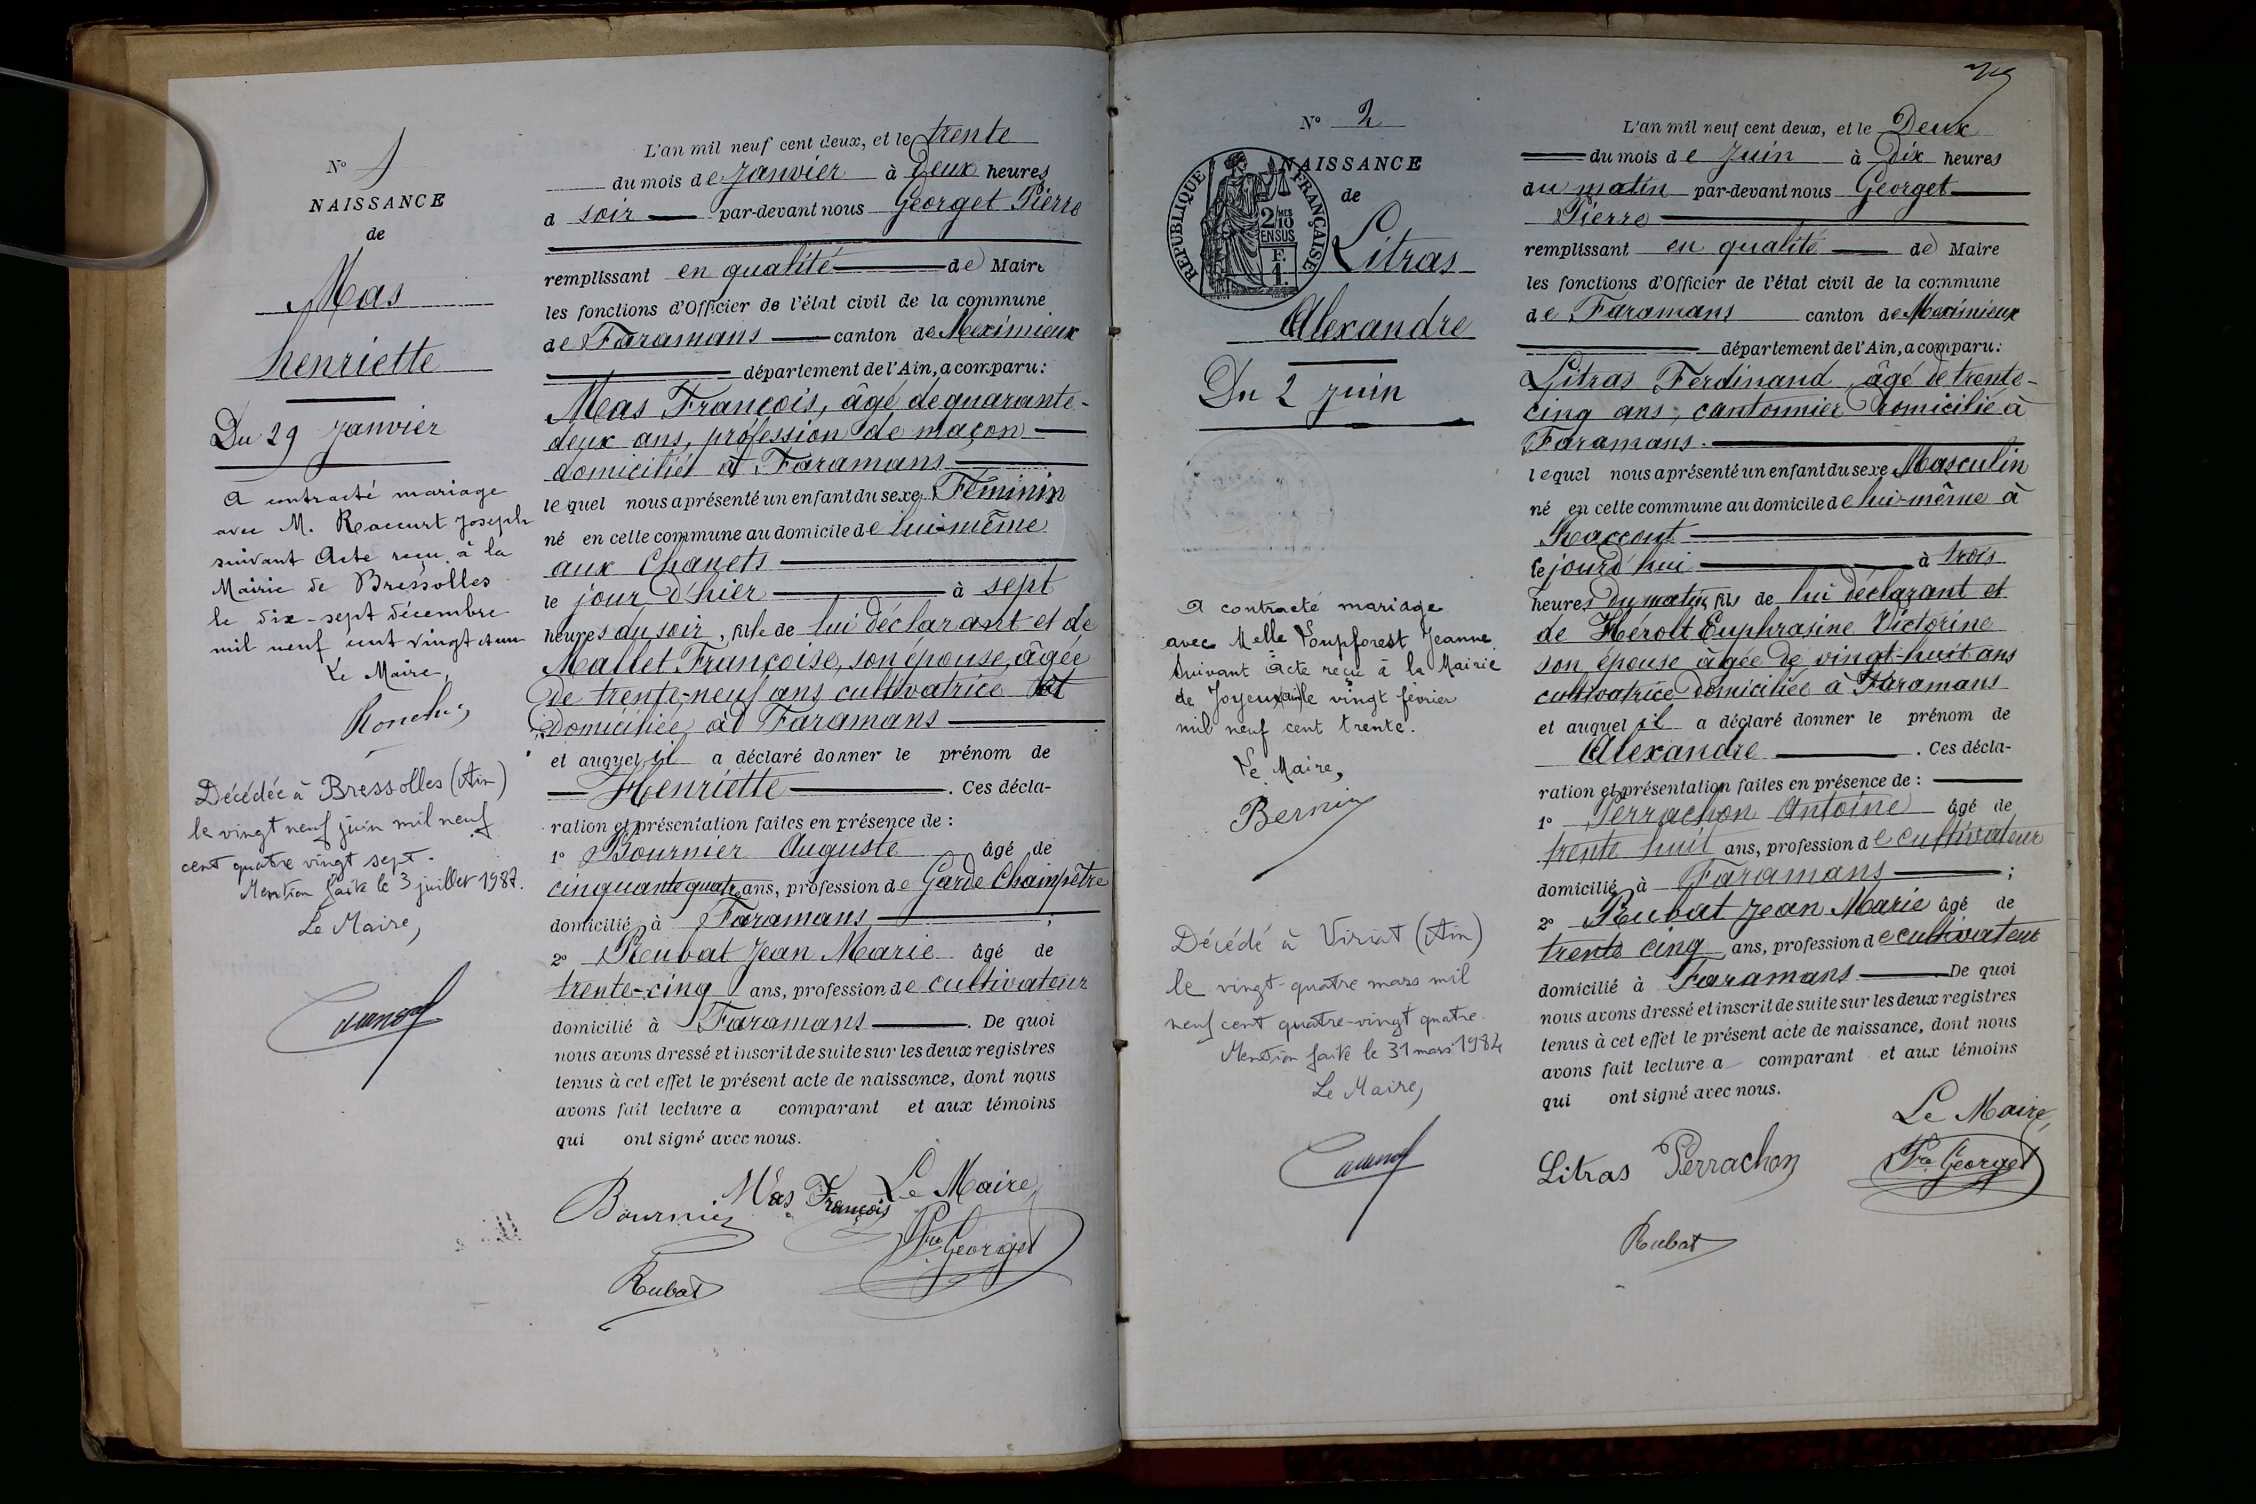 N° 1
NAISSANCE
de
Mas
henriette
Du 29 Janvier
A contracté mariage
avec M. Raccurt Joseph
suivant Acte reçu à la
Mairie de Bressolles
le dix-sept décembre
mil neuf cent vingt et un
Le Maire,
Décédée à Bressolles (Ain)
le vingt neuf juin mil neuf
cent quatre vingt sept.
Mention faite le 3 juillet 1987.
Le Maire,
L'an mil neuf cent deux, et le trente
du mois de Janvier à Deux heures
d soir par-devant nous Georget Pierre
remplissant en qualité de Maire
les fonctions d'Officier de l'état civil de la commune
de Faramans canton de Meximieux
département de l'Ain, a comparu:
Mas François, âgé de quarante-
deux ans, profession de maçon
domicilié à Faramans
lequel nous a présenté un enfant du sexe Féminin
né en cette commune au domicile de lui-même
aux Chanets
le jour d'hier à sept
heures du soir, fille de lui déclarant et de
Mallet Françoise, son épouse, âgée
de trente-neuf ans cultivatrice et
Domiciliée à Faramans
et auquel il a déclaré donner le prénom de
Henriette. Ces décla-
ration et présentation faites en présence de :
1° Bournier Auguste âgé de
cinquante quatre ans, profession de Garde Champêtre
domicilié à Faramans ;
2° Rubat Jean Marie âgé de
trente-cinq ans, profession de cultivateur
domicilié à Faramans. De quoi
nous avons dressé et inscrit de suite sur les deux registres
tenus à cet effet le présent acte de naissance, dont nous
avons fait lecture a comparant et aux témoins
qui ont signé avec nous.
Bournier Mas François Le Maire
Pre Georget
Rubat
N° 2
NAISSANCE
de
RÉPUBLIQUE FRANÇAISE
2/10 MES
EN SUS
F.
1.
Litras
Alexandre
Du 2 Juin
A contracté mariage
avec Melle Loupforest Jeanne
Suivant Acte reçu à la Mairie
de Joyeux (Ain) le vingt février
mil neuf cent trente.
Le Maire,
Bernin
Décédé à Viriat (Ain)
le vingt-quatre mars mil
neuf cent quatre-vingt quatre.
Mention faite le 31 mars 1984
Le Maire,
L'an mil neuf cent deux, et le Deux
du mois de Juin à Dix heures
du matin par-devant nous Georget
Pierre
remplissant en qualité de Maire
les fonctions d'Officier de l'état civil de la commune
de Faramans canton de Meximieux
département de l'Ain, a comparu:
Litras Ferdinand âgé de trente-
cinq ans, cantonnier domicilié à
Faramans.
lequel nous a présenté un enfant du sexe Masculin
né en cette commune au domicile de lui-même à
Raccout
le jourd'hui à trois
heures du matin, fils de lui déclarant et
de Hérolt Euphrasine Victorine
son épouse âgée de vingt-huit ans
cultivatrice domiciliée à Faramans
et auquel il a déclaré donner le prénom de
Alexandre. Ces décla-
ration et présentation faites en présence de :
1° Perrachon Antoine âgé de
trente huit ans, profession de cultivateur
domicilié à Faramans ;
2° Rubat Jean Marie âgé de
trente cinq ans, profession de cultivateur
domicilié à Faramans De quoi
nous avons dressé et inscrit de suite sur les deux registres
tenus à cet effet le présent acte de naissance, dont nous
avons fait lecture a comparant et aux témoins
qui ont signé avec nous.
Le Maire,
Litras Perrachon Pre Georget
Rubat